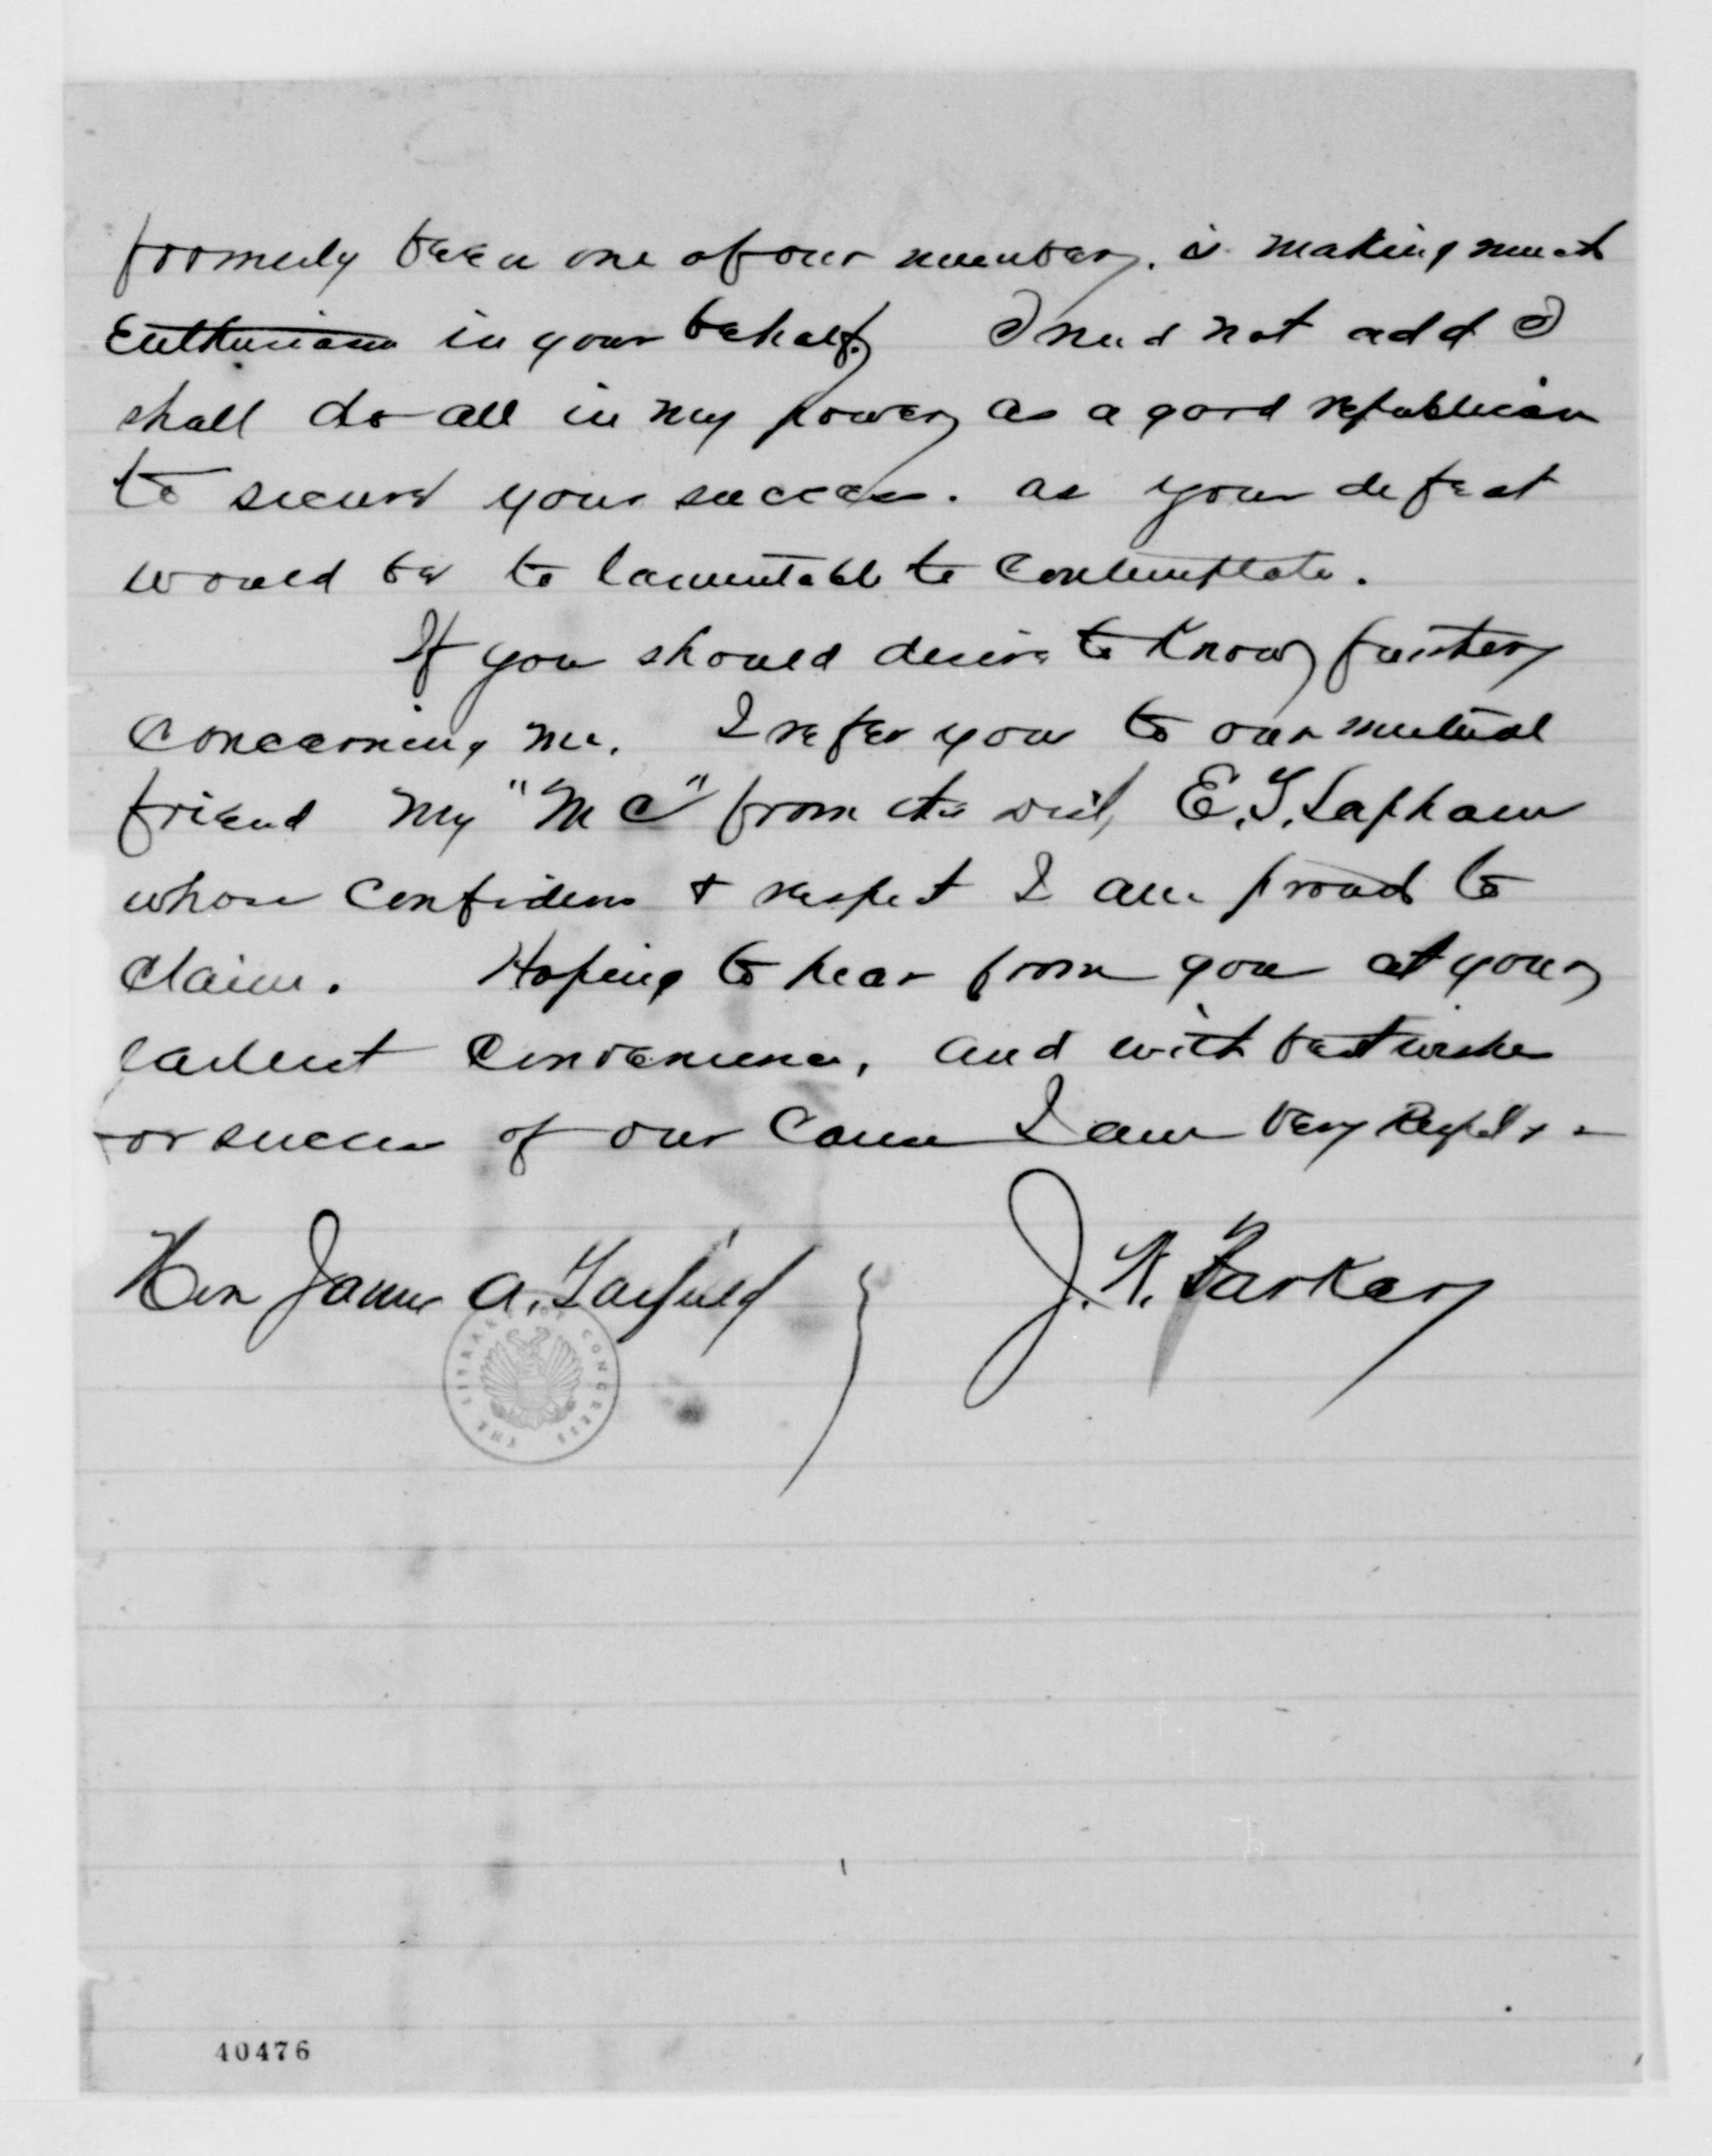 formerly been one of our number. is making much
Enthusiasm in your behalf. I need not add I
shall do all in my power as a good republican
to secure your success. as your defeat
would be to lamentable to contemplate.
If you should desire to know further
concerning me. I refer you to our mutual
friend my "M C" from this dist, E. G. Lapham
whose confidence & respect I am proud to
claim. Hoping to hear from you at your
earliest convenience, and with best wishes
for success of our Cause I am Very Respt
Hon James A. Garfield
THE LIBRARY OF CONGRESS
40476